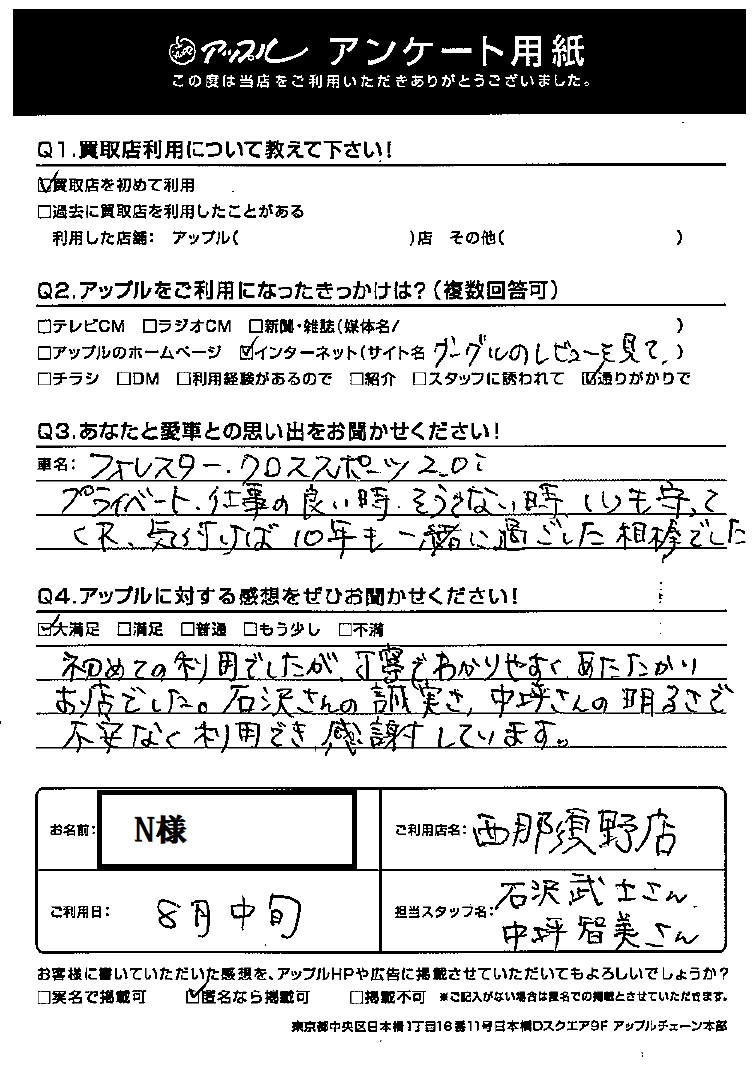 アップル アンケート用紙
この度は当店をご利用いただきありがとうございました。
Q1.買取店利用について教えて下さい!
☑買取店を初めて利用
□過去に買取店を利用したことがある
利用した店舗: アップル( )店 その他( )
Q2.アップルをご利用になったきっかけは?(複数回答可)
□テレビCM □ラジオCM □新聞・雑誌(媒体名/ )
□アップルのホームページ ☑インターネット(サイト名 グーグルのレビューを見て、)
□チラシ □DM □利用経験があるので □紹介 □スタッフに誘われて ☑通りがかりで
Q3.あなたと愛車との思い出をお聞かせください!
車名: フォレスター・クロススポーツ 2.0i
プライベート、仕事の良い時、そうでない時、いつも守って
くれ、気付けば10年も一緒に過ごした相棒でした
Q4.アップルに対する感想をぜひお聞かせください!
☑大満足 □満足 □普通 □もう少し □不満
初めての利用でしたが、丁寧でわかりやすく、あたたかい
お店でした。石沢さんの誠実さ、中坪さんの明るさで
不安なく利用でき、感謝しています。
お名前: N様
ご利用店名: 西那須野店
ご利用日: 8月中旬
担当スタッフ名: 石沢武士さん
中坪智美さん
お客様に書いていただいた感想を、アップルHPや広告に掲載させていただいてもよろしいでしょうか?
□実名で掲載可 ☑匿名なら掲載可 □掲載不可 ※ご記入がない場合は匿名での掲載とさせていただきます。
東京都中央区日本橋1丁目16番11号日本橋Dスクエア9F アップルチェーン本部